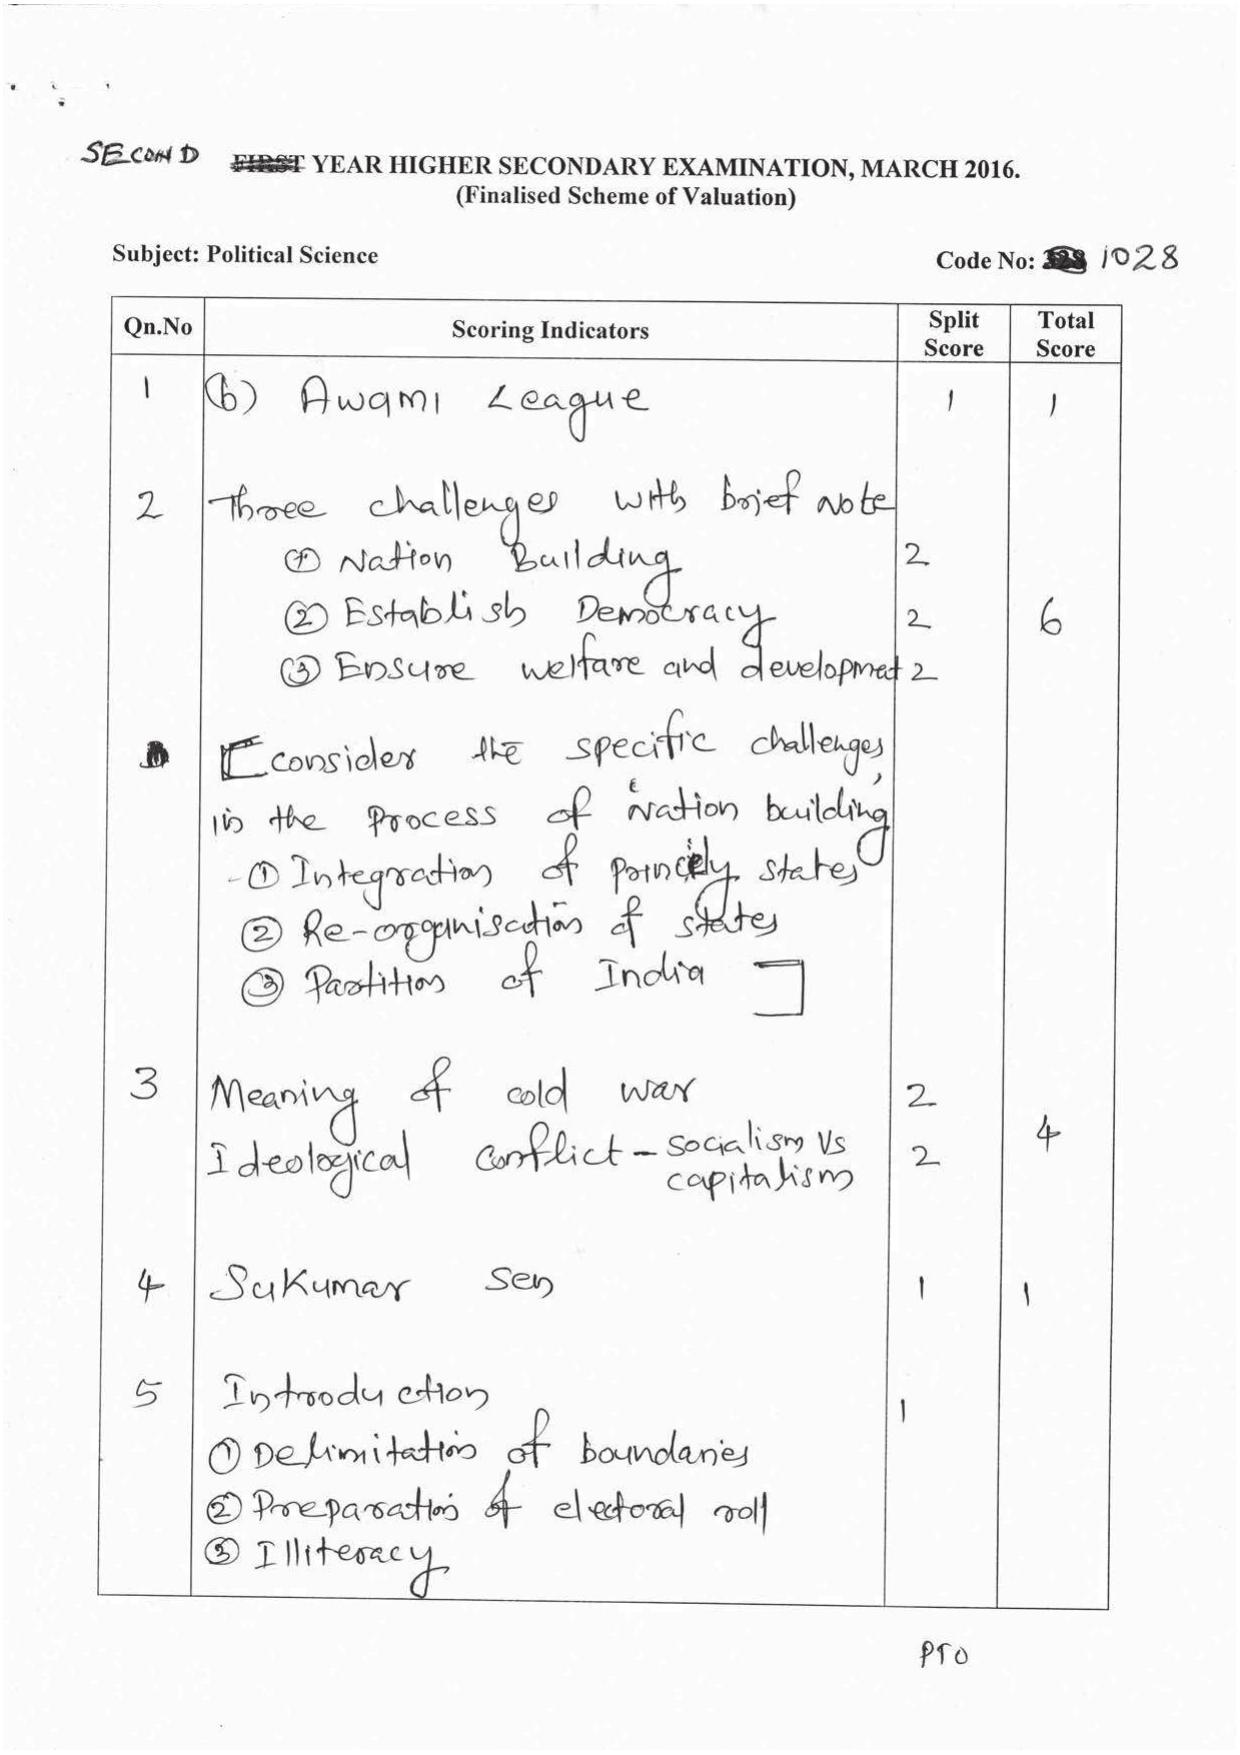 SECOND FIRST YEAR HIGHER SECONDARY EXAMINATION, MARCH 2016.
(Finalised Scheme of Valuation)
Subject: Political Science Code No: 1028
Qn.No Scoring Indicators Split Score Total Score
1 (b) Awami League 1 1
2 Three challenges with brief note
① Nation Building 2
② Establish Democracy 2 6
③ Ensure welfare and developmet 2
[consider the specific challenges,
in the process of Nation building
- ① Integration of princely states
② Re-organisation of states
③ Partition of India ]
3 Meaning of cold war 2
Ideological conflict - socialism Vs 2 4
capitalism
4 Sukumar Sen 1 1
5 Introduction 1
① Delimitation of boundaries
② Preparation of electoral roll
③ Illiteracy
PTO